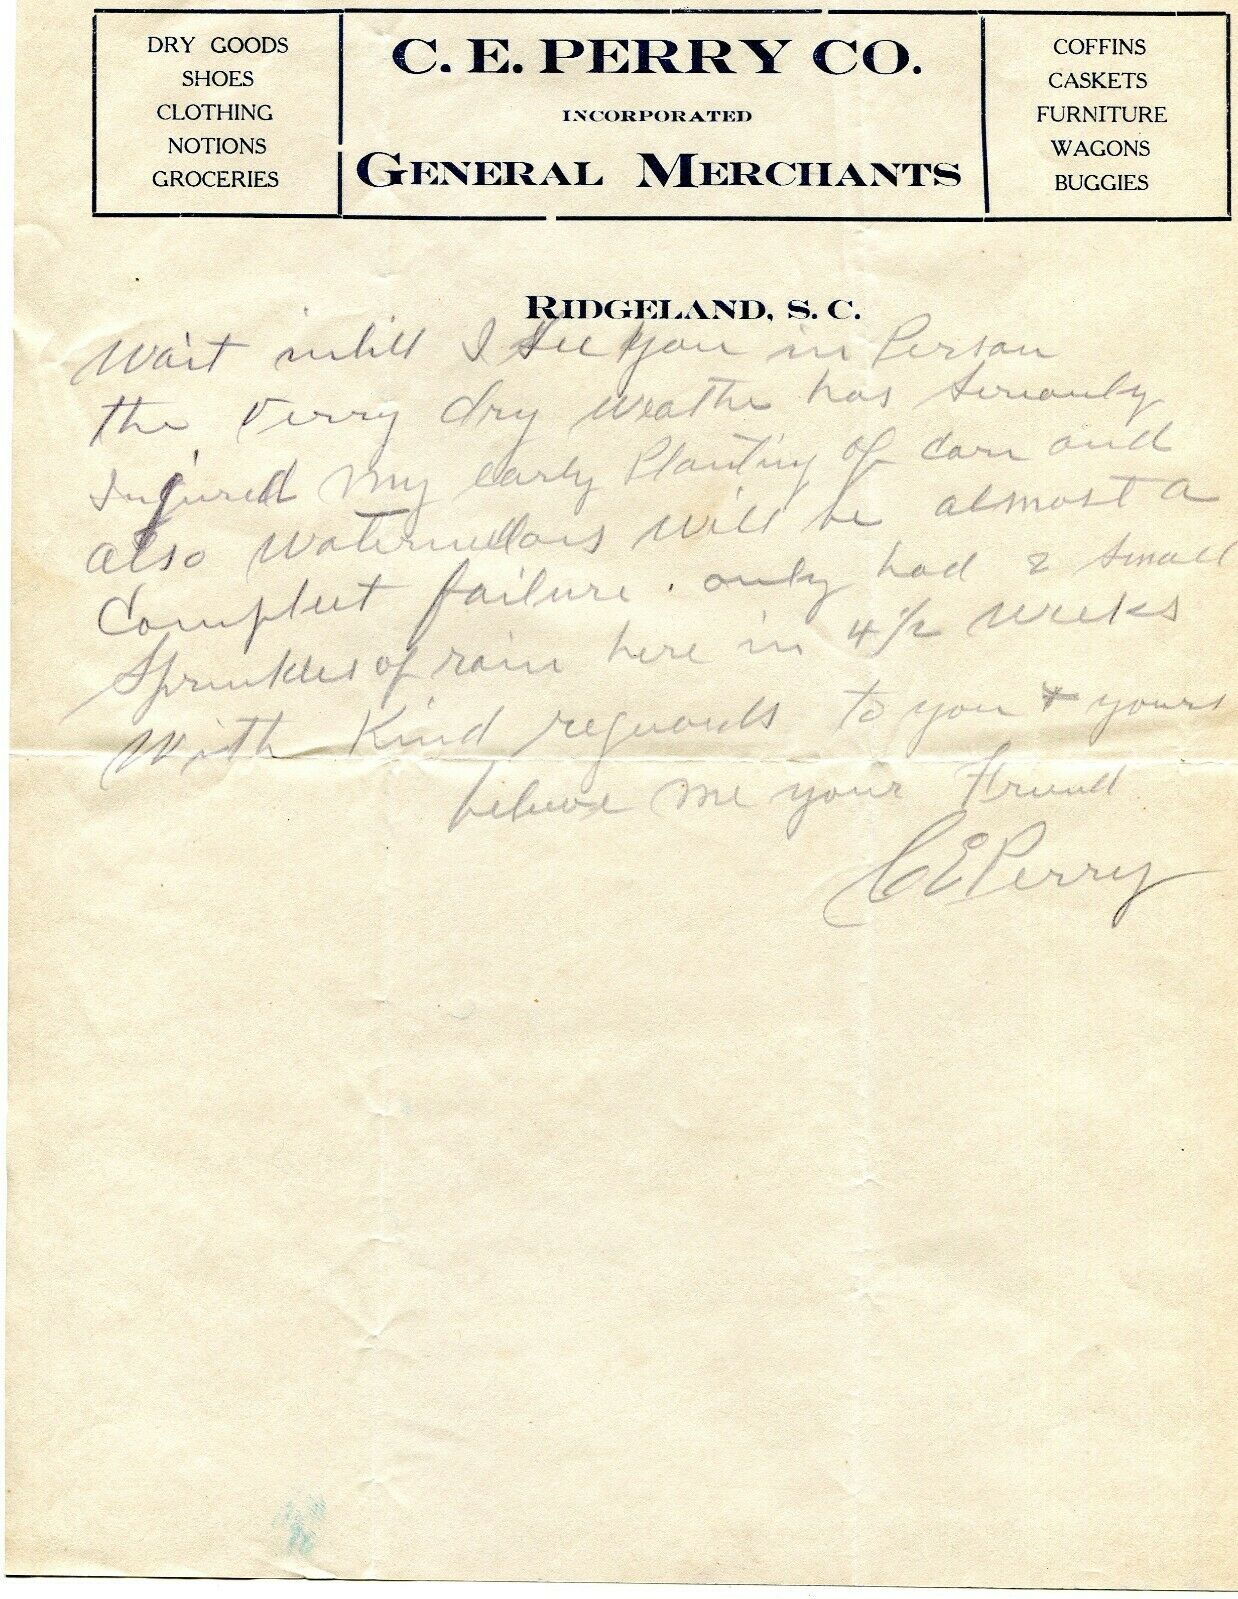 DRY GOODS
SHOES
CLOTHING
NOTIONS
GROCERIES
C. E. PERRY CO.
INCORPORATED
GENERAL MERCHANTS
COFFINS
CASKETS
FURNITURE
WAGONS
BUGGIES
RIDGELAND, S. C.
Wait intill I See You in Person
the Verry dry weather has Seriously
Injured My early Planting of Corn and
also Watermellons Will be almost a
Compleet failure. only had 2 Small
Sprinkles of rain here in 4 1/2 Weeks
With Kind reguards to you + yours
believe me your Friend
C E Perry